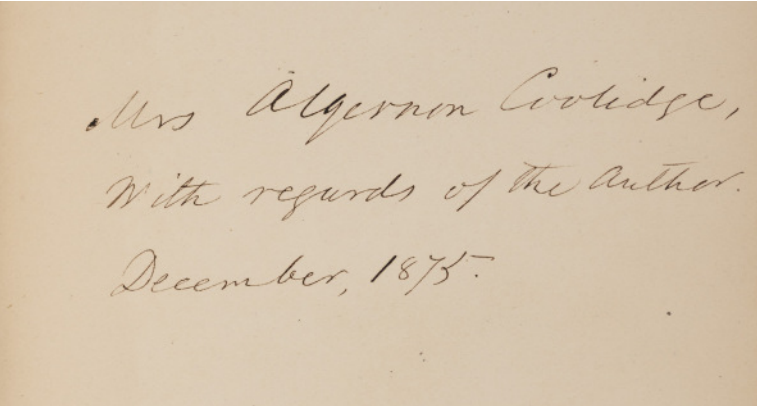 Mrs Algernon Coolidge,
With regards of the Author.
December, 1875.